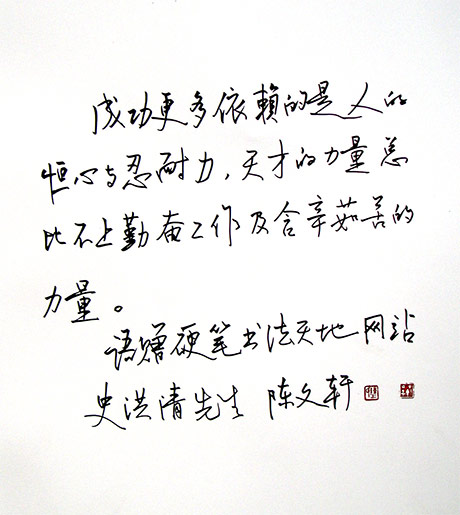 成功更多依賴的是人的
恒心与忍耐力，天才的力量总
比不上勤奋工作及含辛茹苦的
力量。
语赠硬笔书法天地网站
史洪清先生 陈文轩